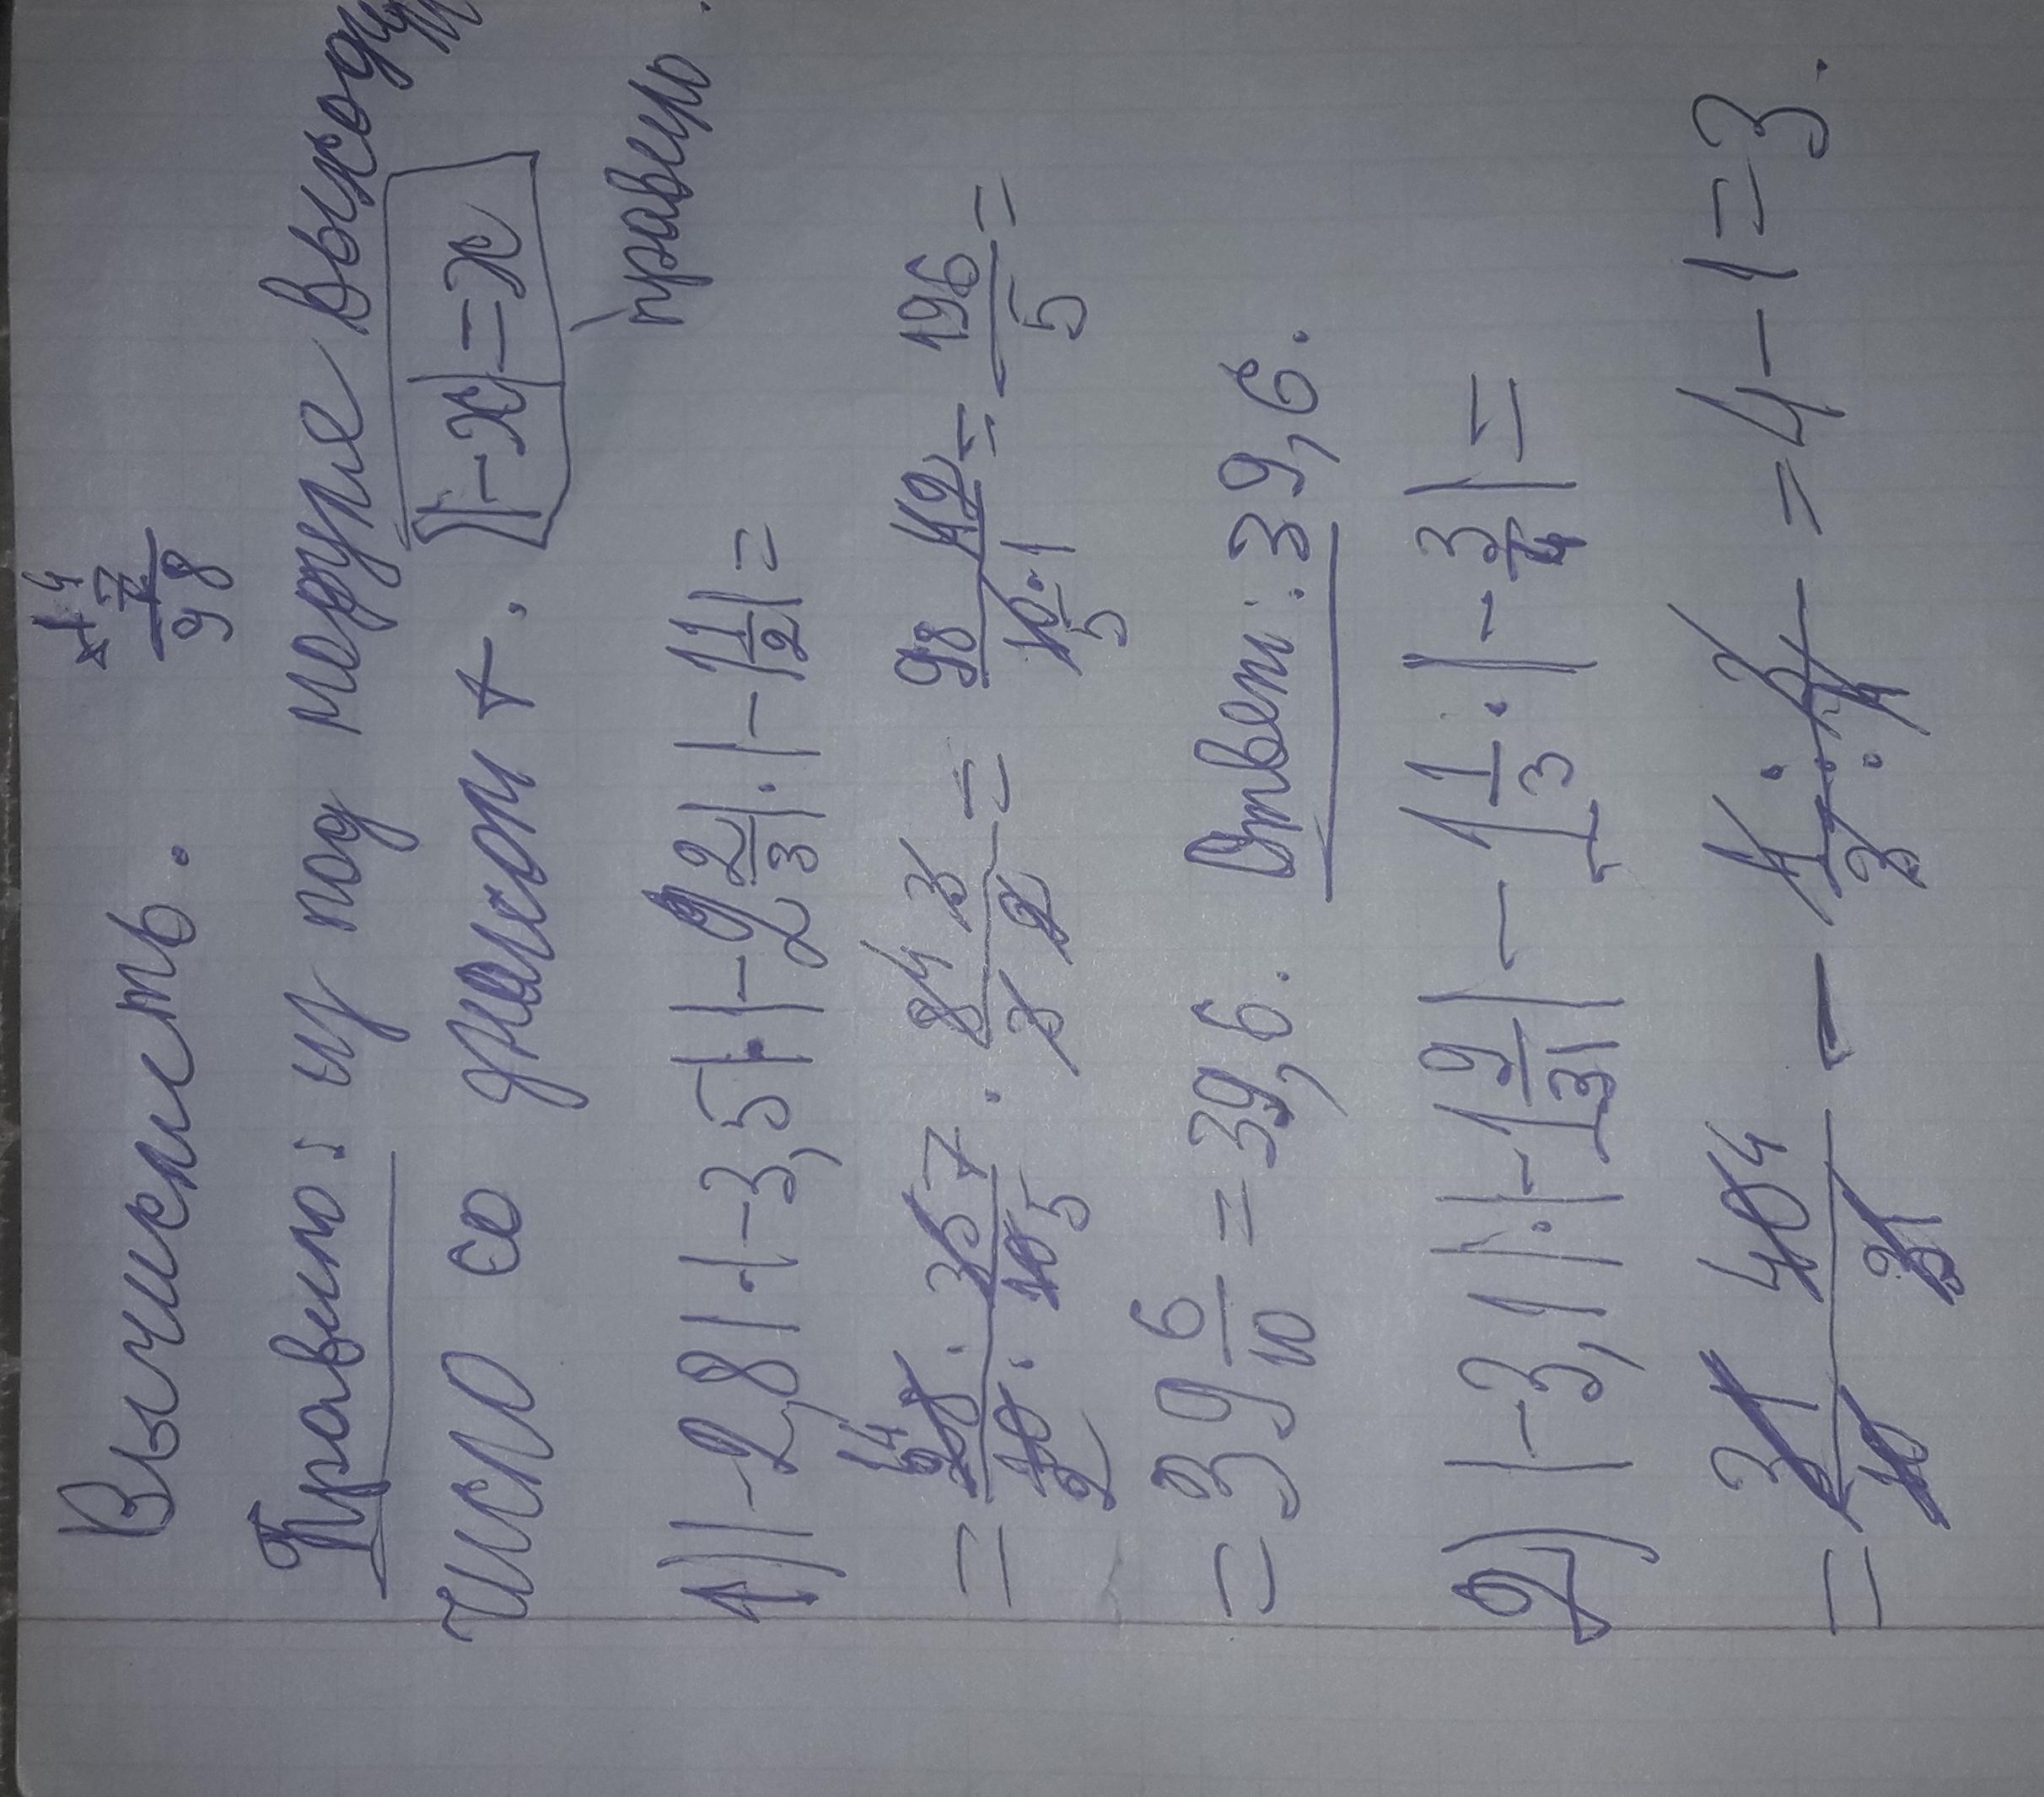 ×14
7
98
Вычислить.
Правило: из под модуля выходит
число со знаком +. |-x|=x
правило.
1) |-2,8|·|-3,5|·|-2 2/3|·|-1 1/2|=
= 28·35/10·10 · 8/3 3/2 = 98 ·2/10·1 = 196/5 =
= 39 6/10 = 39,6. Ответ: 39,6.
2) |-3,1|·|-1 9/31| - 1 1/3 · |-3/4| =
= 31 40/10 31 - 4·3/3·4 = 4-1=3.